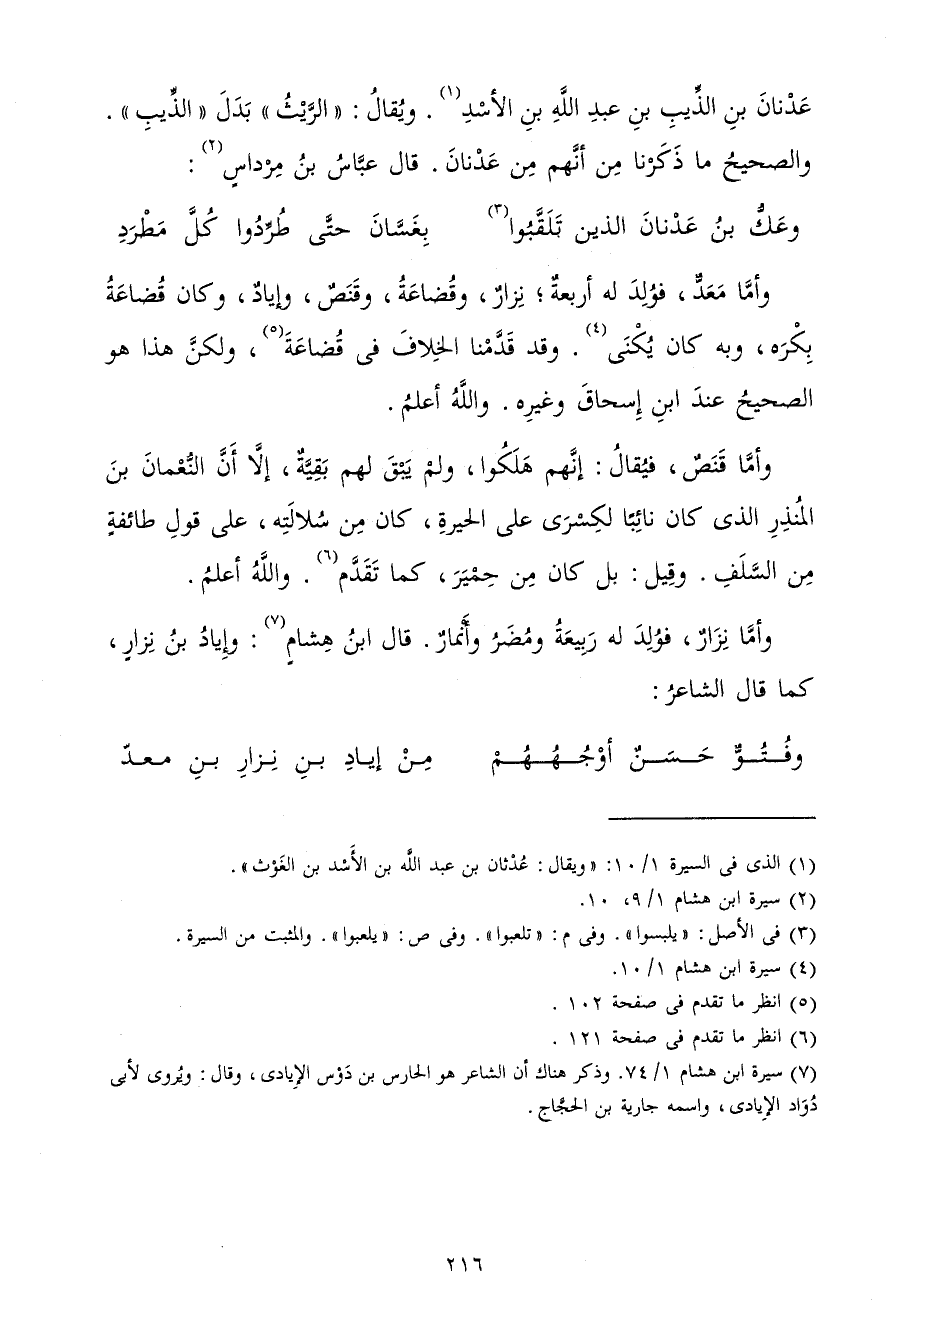 عَدْنانَ بنِ الذِّيبِ بنِ عبدِ اللَّهِ بنِ الأسْدِ(١) . ويُقالُ : « الرَّيْثُ » بَدَلَ « الذِّيبِ » .
والصحيحُ ما ذَكَرْنا مِن أنَّهم مِن عَدْنانَ . قال عبَّاسُ بنُ مِرْداسٍ(٢) :
وعَكُّ بنُ عَدْنانَ الذين تَلَقَّبُوا(٣) بغَسَّانَ حتَّى طُرِّدُوا كُلَّ مَطْرَدِ
وأمَّا مَعَدٌّ ، فوُلِدَ له أربعةٌ ؛ نِزارٌ ، وقُضاعَةُ ، وقَنَصٌ ، وإيادٌ ، وكان قُضاعَةُ
بِكْرَه ، وبه كان يُكْنَى(٤) . وقد قَدَّمْنا الخِلافَ فى قُضاعَةَ(٥) ، ولكنَّ هذا هو
الصحيحُ عندَ ابنِ إسحاقَ وغيرِه . واللَّهُ أعلمُ .
وأمَّا قَنَصٌ ، فيُقالُ : إنَّهم هَلَكُوا ، ولمْ يَبْقَ لهم بَقِيَّةٌ ، إلَّا أنَّ النُّعْمانَ بنَ
المُنْذِرِ الذى كان نائِبًا لكِسْرَى على الحيرةِ ، كان مِن سُلالَتِه ، على قولِ طائفةٍ
مِن السَّلَفِ . وقِيل : بل كان مِن حِمْيَرَ ، كما تَقَدَّم(٦) . واللَّهُ أعلمُ .
وأمَّا نِزَارٌ ، فوُلِدَ له رَبِيعَةُ ومُضَرُ وأَنْمارٌ . قال ابنُ هِشامٍ(٧) : وإيادُ بنُ نِزارٍ ،
كما قال الشاعرُ :
وفُـتُـوٌّ حَـسَـنٌ أوْجُـهُـهُـمْ مِنْ إيادِ بـنِ نِـزارِ بـنِ مـعـدّ
(١) الذى فى السيرة ١/ ١٠: « ويقال : عُدْثان بن عبد اللَّه بن الأَسْد بن الغَوْث » .
(٢) سيرة ابن هشام ١/ ٩، ١٠.
(٣) فى الأصل : « يلبسوا » . وفى م : « تلعبوا » . وفى ص : « يلعبوا » . والمثبت من السيرة .
(٤) سيرة ابن هشام ١/ ١٠.
(٥) انظر ما تقدم فى صفحة ١٠٢ .
(٦) انظر ما تقدم فى صفحة ١٢١ .
(٧) سيرة ابن هشام ١/ ٧٤. وذكر هناك أن الشاعر هو الحارس بن دَوْس الإيادى ، وقال : ويُروى لأبى
دُوَاد الإيادى ، واسمه جارية بن الحجَّاج .
٢١٦